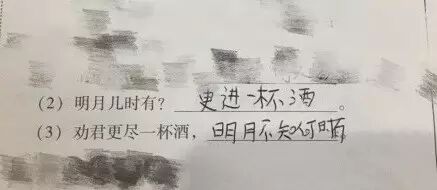 (2) 明月几时有? 更进一杯酒。
(3) 劝君更尽一杯酒, 明月不知何时